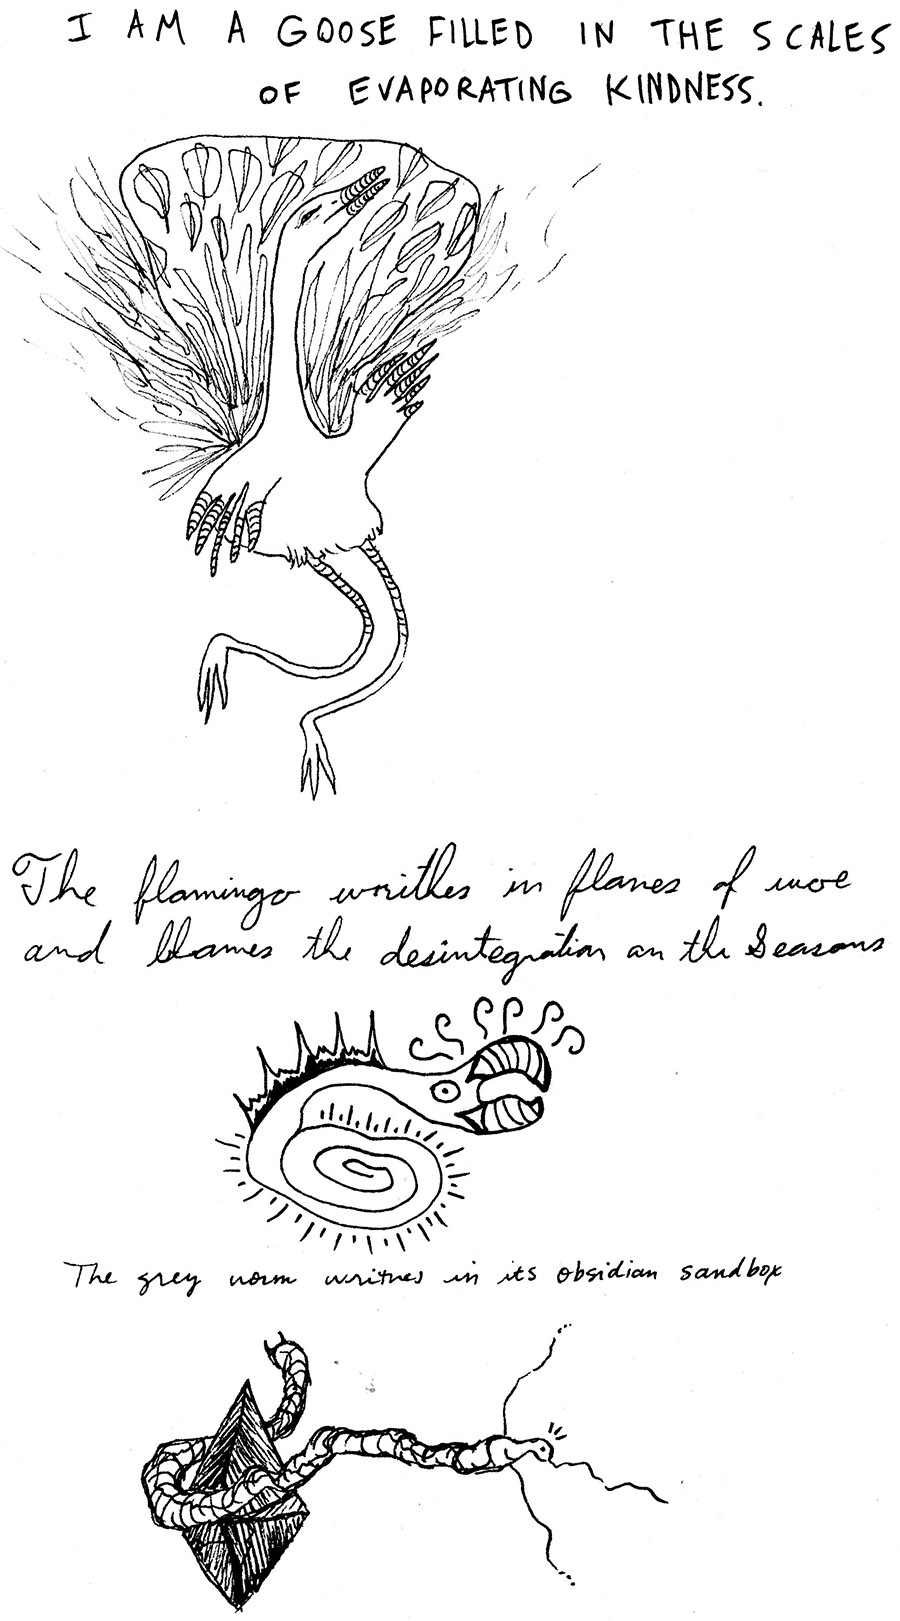 I AM A GOOSE FILLED IN THE SCALES
OF EVAPORATING KINDNESS.
The flamingo writhes in planes of woe
and blames the desintegration on the Seasons
The grey worm writhes in its obsidian sandbox